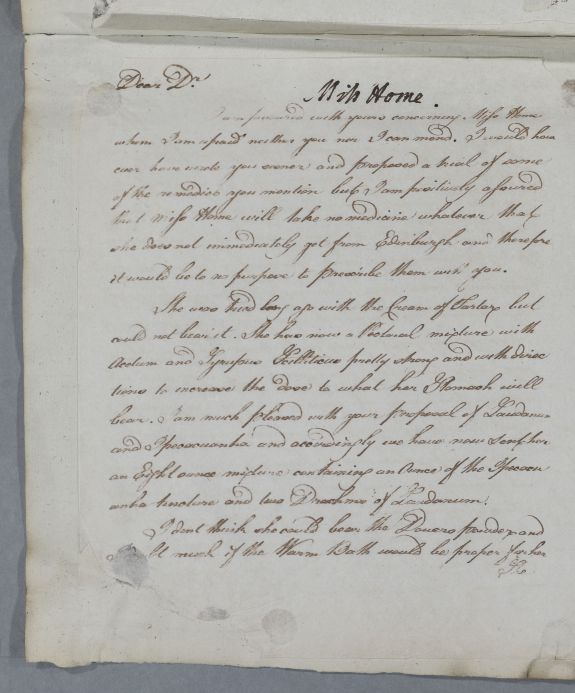 Dear Dr.
Miss Home.
I am favoured with yours concerning Miss Home
whom I am afraid neither you nor I can mend. I would how
ever have wrote you sooner and proposed a trial of some
of the remedies you mention but I am positively assured
that Miss Home will take no medicine whatever that
she does not immediately get from Edinburgh and therefore
it would be to no purpose to prescribe them with you.
She was tried long ago with the Cream of Tartar but
could not bear it. She has now a Pectoral mixture with
Acetum and Syrupus Scilliticus pretty strong and with direc
tions to increase the dose to what her Stomach will
bear. I am much pleased with your proposal of Laudanum
and Ipecacuanha and accordingly we have now sent her
an Eight ounce mixture containing an Ounce of the Ipecacu
anha tincture and two Drachms of Laudanum.
I dont think she could bear the Dovers powder and
much of the Warm Bath would be proper for her